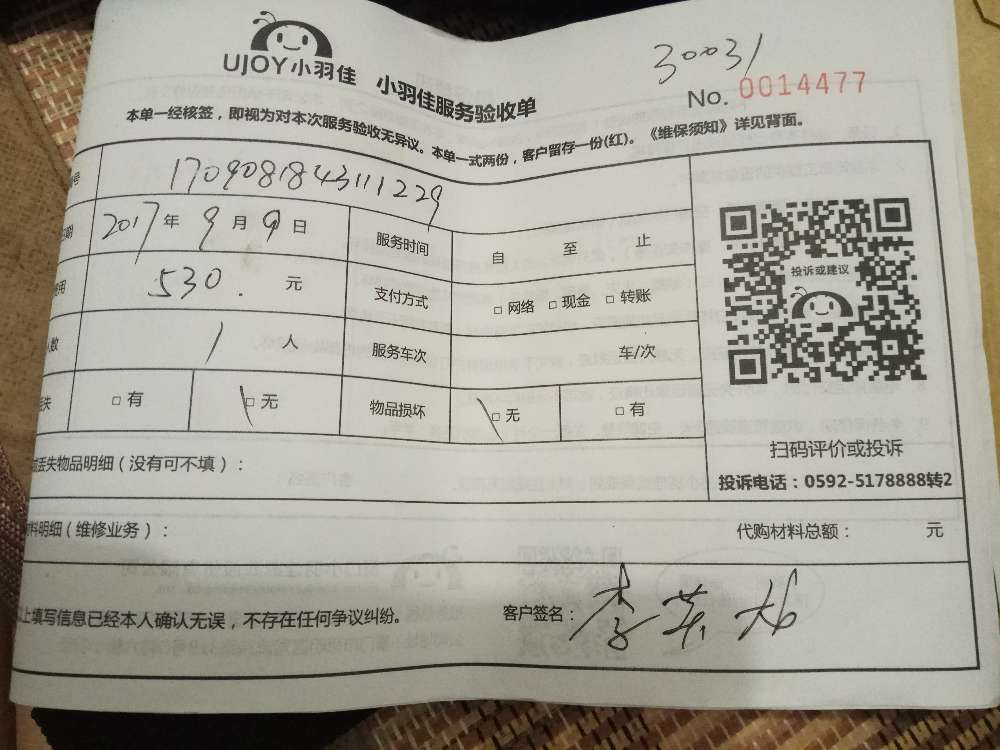 UJOY小羽佳 小羽佳服务验收单
30031
No. 0014477
本单一经核签，即视为对本次服务验收无异议。本单一式两份，客户留存一份(红)。《维保须知》详见背面。
号 1709081843111229
期 2017年9月9日 服务时间 自 至 止
用 530. 元 支付方式 □网络 □现金 □转账
人数 1 人 服务车次 车/次
失 □有 □无 物品损坏 □无 □有
投诉或建议
扫码评价或投诉
投诉电话：0592-5178888转2
丢失物品明细（没有可不填）：
料明细（维修业务）： 代购材料总额： 元
上填写信息已经本人确认无误，不存在任何争议纠纷。 客户签名：李英